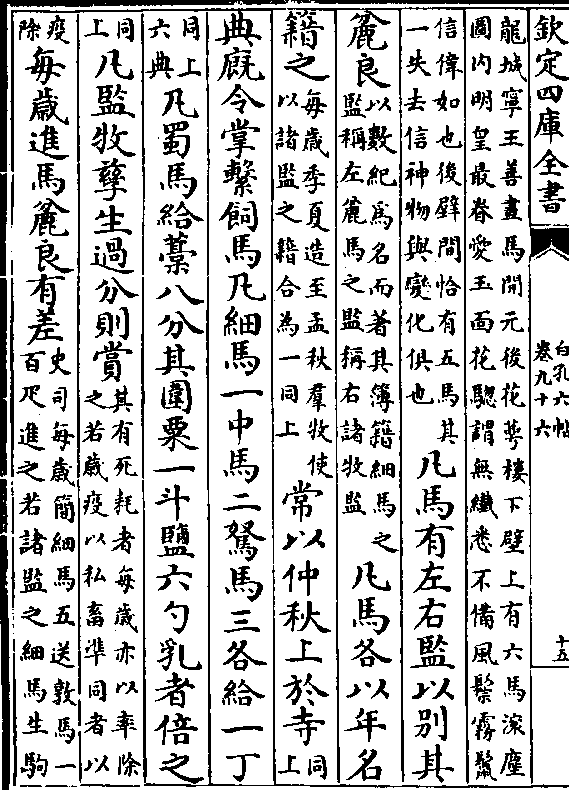 欽定四庫全書
白孔六帖
卷九十六
十五
龍城寧王善畫馬開元後花萼樓下壁上有六馬滚塵
圖内明皇最眷愛玉面花驄謂無纎悉不備風鬃霧鬛
信偉如也後壁間恰有五馬其
一失去信神物與變化俱也
凡馬有左右監以别其
麄良
以數紀為名而著其簿籍細馬之
監稱左麄馬之監稱右諸牧監
凡馬各以年名
籍之
每歲季夏造至孟秋羣牧使
以諸監之籍合為一同上
常以仲秋上於寺
同
上
典廐令掌繫飼馬凡細馬一中馬二駑馬三各給一丁
同上
六典
凡蜀馬給藁八分其圍粟一斗鹽六勺乳者倍之
同
上
凡監牧孳生過分則賞
其有死耗者每歲亦以率除
之若歲疫以私畜準同者以
疫
除
每歲進馬麄良有差
史司每歲簡細馬五送敦馬一
百疋進之若諸監之細馬生駒